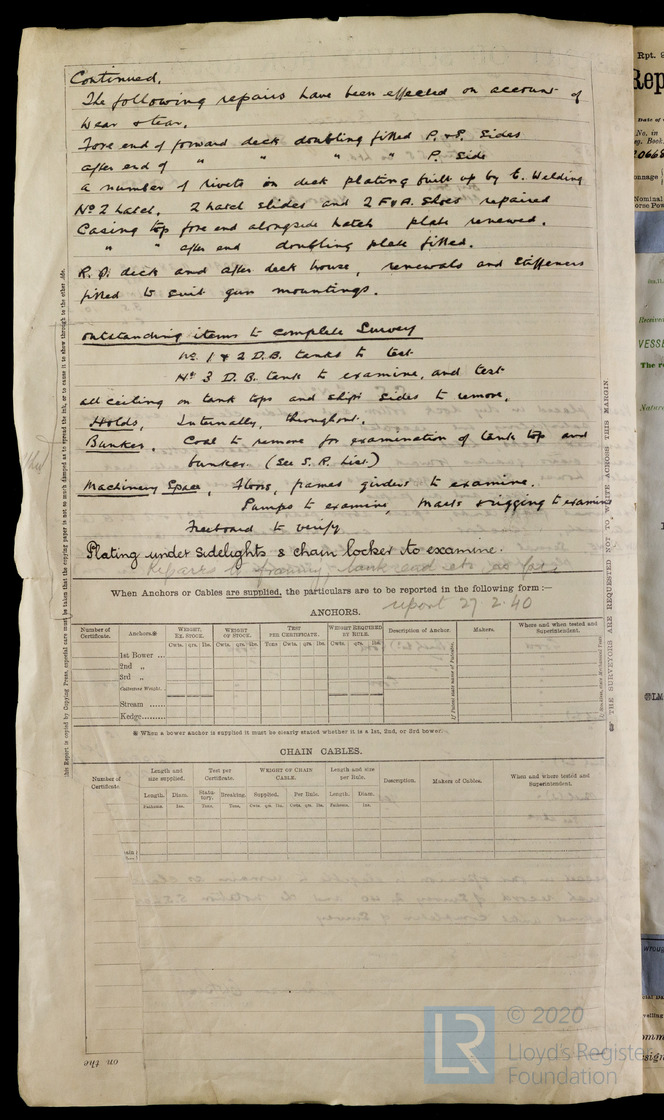 Continued.
The following repairs have been effected on account of
Wear & tear.
Fore end of forward deck doubling fitted P. & S. Sides
after end of " " " " P. Side
a number of rivets in deck plating built up by E. Welding
No 2 hatch. 2 hatch slides and 2 F & A. Shoes repaired
Casing top fore end alongside hatch plate renewed.
" " after end doubling plate fitted.
R. Q. deck and after deck house, renewals and stiffeners
fitted to suit gun mountings.
Outstanding items to complete Survey
No. 1 & 2 D.B. tanks to test
No 3 D.B. tank to examine, and test
all ceiling on tank tops and ships sides to remove.
Holds, Internally, throughout.
Bunker, Coal to remove for examination of tank top and
bunker. (See S. R. List)
Machinery Space, floors, frames girders to examine.
Pumps to examine, Masts & rigging to examine
Freeboard to verify
Plating under sidelights & chain locker to examine.
Repairs to framing, tank end etc, as per
report 27.2.40
When Anchors or Cables are supplied, the particulars are to be reported in the following form :—
ANCHORS.
Number of Certificate. Anchors.※ WEIGHT, EX. STOCK. WEIGHT OF STOCK. TEST PER CERTIFICATE. WEIGHT REQUIRED BY RULE. Description of Anchor. Makers. Where and when tested and Superintendent.
Cwts. qrs. lbs. Cwts. qrs. lbs. Tons Cwts. qrs. lbs. Cwts. qrs. lbs.
1st Bower ...
2nd „
3rd „
Collective Weight.
Stream ......
Kedge.........
※ When a bower anchor is supplied it must be clearly stated whether it is a 1st, 2nd, or 3rd bower.
CHAIN CABLES.
Number of Certificate. Length and size supplied. Test per Certificate. WEIGHT OF CHAIN CABLE. Length and size per Rule. Description. Makers of Cables. When and where tested and Superintendent.
Length. Diam. Statutory. Breaking. Supplied. Per Rule. Length. Diam.
Fathoms. Ins. Tons. Tons. Cwts. qrs. lbs. Cwts. qrs. lbs. Fathoms. Ins.
THE SURVEYORS ARE REQUESTED NOT TO WRITE ACROSS THIS MARGIN
on the
Rpt. 9
Rep
Date of
No. in
Reg. Book.
Nominal
VESSE
The re
© 2020
LR
Lloyd's Register
Foundation